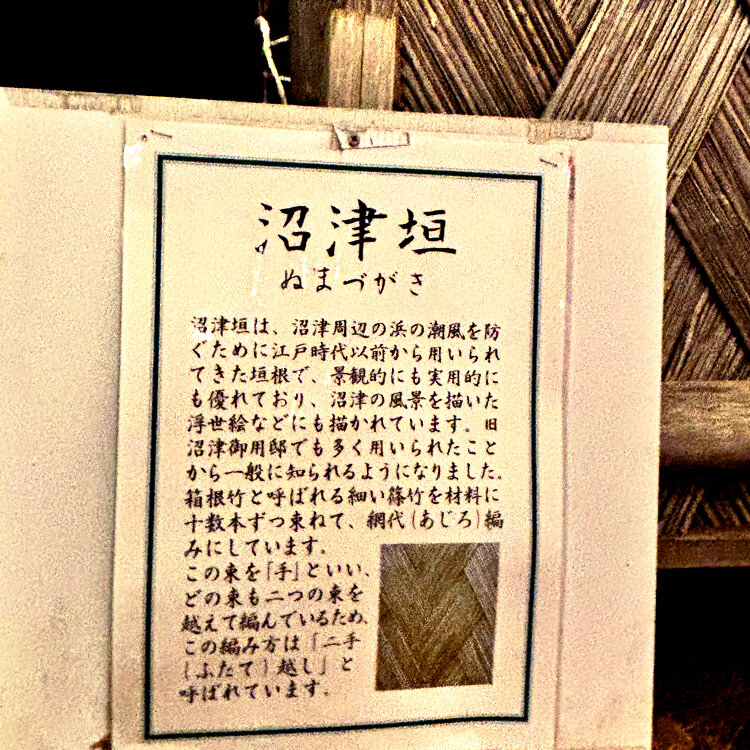 沼津垣
ぬまづがき
沼津垣は、沼津周辺の浜の潮風を防
ぐために江戸時代以前から用いられ
てきた垣根で、景観的にも実用的に
も優れており、沼津の風景を描いた
浮世絵などにも描かれています。旧
沼津御用邸でも多く用いられたこと
から一般に知られるようになりました。
箱根竹と呼ばれる細い篠竹を材料に
十数本ずつ束ねて、網代(あじろ)編
みにしています。
この束を「手」といい、
どの束も二つの束を
越えて編んでいるため、
この編み方は「二手
(ふたて)越し」と
呼ばれています。